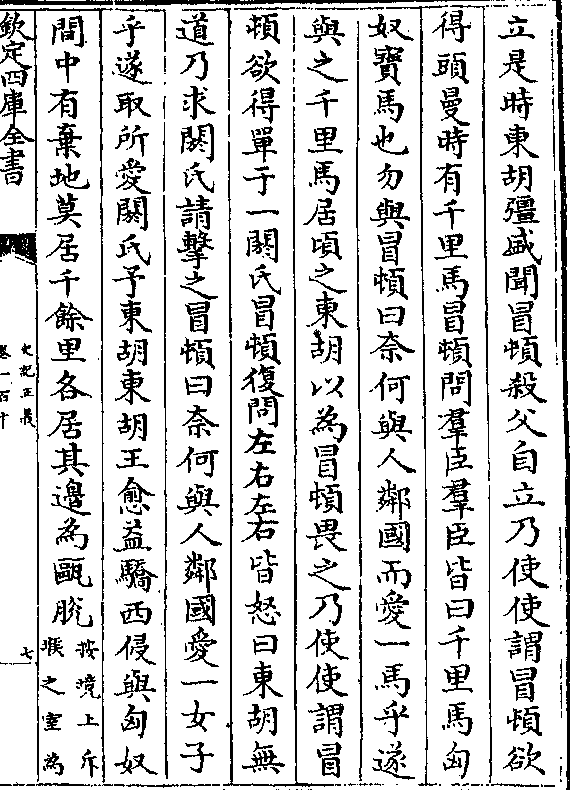 立是時東胡彊盛聞冒頓殺父自立乃使使謂冒頓欲
得頭曼時有千里馬冒頓問羣臣羣臣皆曰千里馬匈
奴寶馬也勿與冒頓曰奈何與人鄰國而愛一馬乎遂
與之千里馬居頃之東胡以為冒頓畏之乃使使謂冒
頓欲得單于一閼氏冒頓復問左右左右皆怒曰東胡無
道乃求閼氏請擊之冒頓曰奈何與人鄰國愛一女子
乎遂取所愛閼氏予東胡東胡王愈益驕西侵與匈奴
間中有棄地莫居千餘里各居其邊為甌脫
按境上斥
堠之室為
欽定四庫全書
史記正義
卷一百十
七